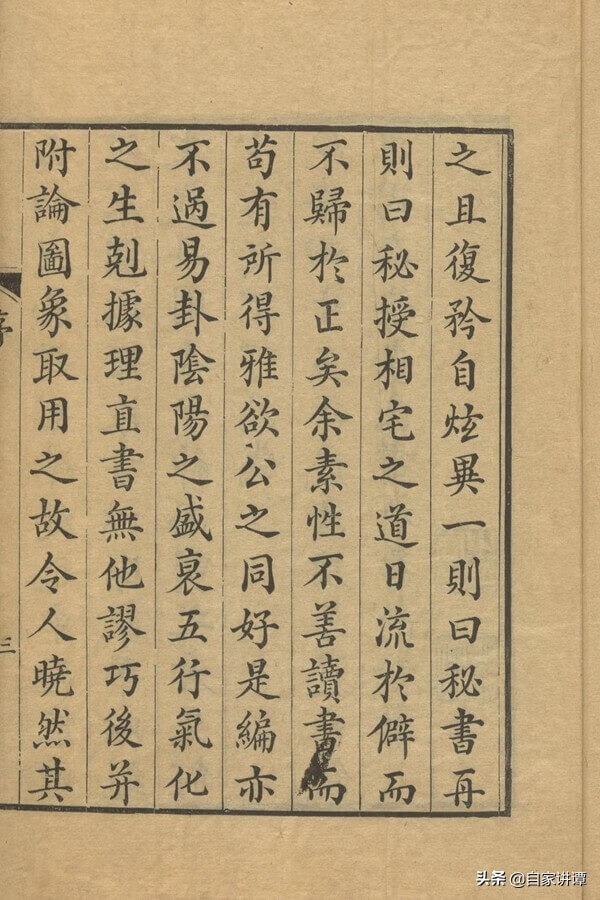 之且復矜自炫異一則曰秘書再
則曰秘授相宅之道日流於僻而
不歸於正矣余素性不善讀書而
苟有所得雅欲公之同好是編亦
不過易卦陰陽之盛衰五行氣化
之生剋據理直書無他謬巧後并
附論圖象取用之故令人曉然其
序
三
头条 @自家讲谭